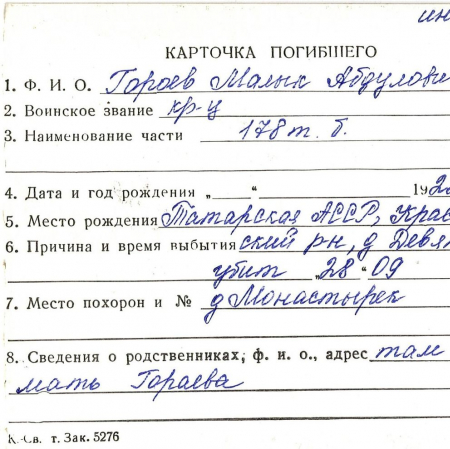 ин
КАРТОЧКА ПОГИБШЕГО
1. Ф. И. О. Гороев Малык Абдулови
2. Воинское звание кр-ц
3. Наименование части 178 т. б.
4. Дата и год рождения „ “ 192
5. Место рождения Татарская АССР, Крас
6. Причина и время выбытия ский рн, д Девят
убит „28“ 09
7. Место похорон и № д Монастырек
8. Сведения о родственниках, ф. и. о., адрес там
мать Гораева
К.-Св. т. Зак. 5276